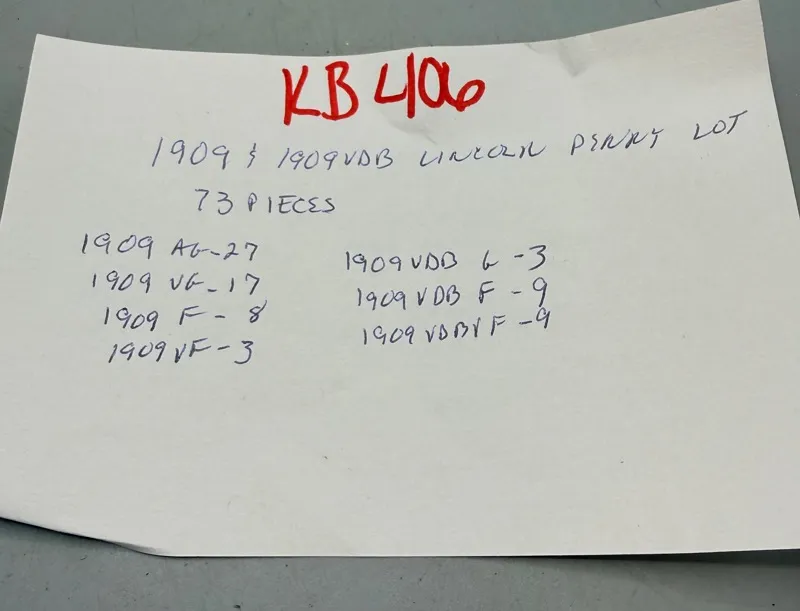 KB 406
1909 & 1909 VDB LINCOLN PENNY LOT
73 PIECES
1909 AG - 27
1909 VG - 17
1909 F - 8
1909 VF - 3
1909 VDB G - 3
1909 VDB F - 9
1909 VDB VF - 9